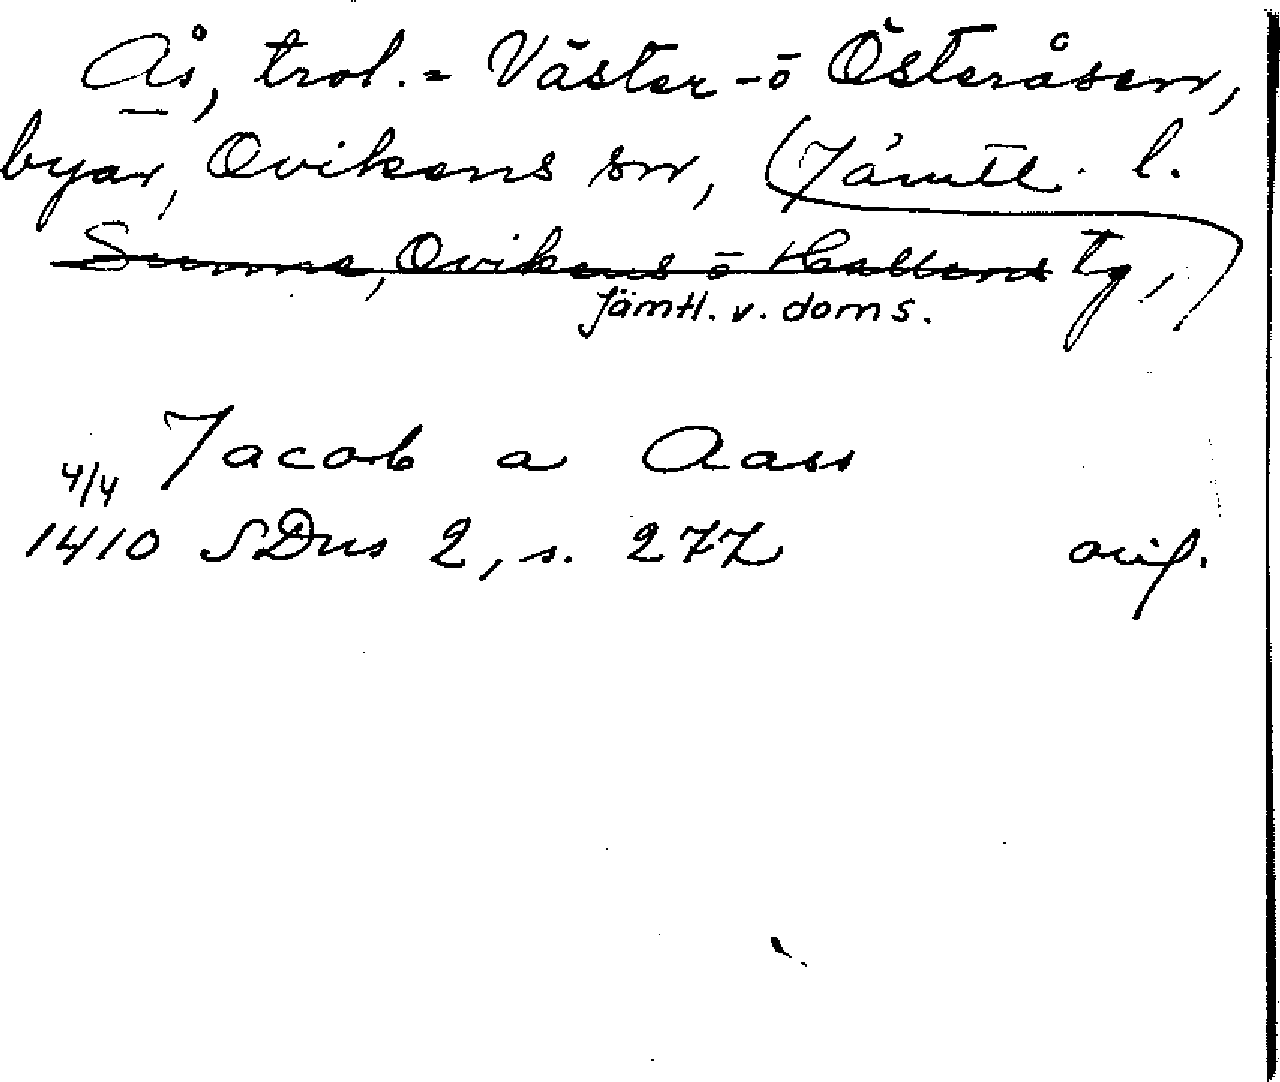 Ås, trol. = Väster- ō Österåsen,
byar, Ovikens sn, (Jämtl. l.
Sunne, Ovikens ō Hallens tg,)
Jämtl. v. doms.
Jacob a Aass
4/4
1410 SDns 2, s. 277 orig.